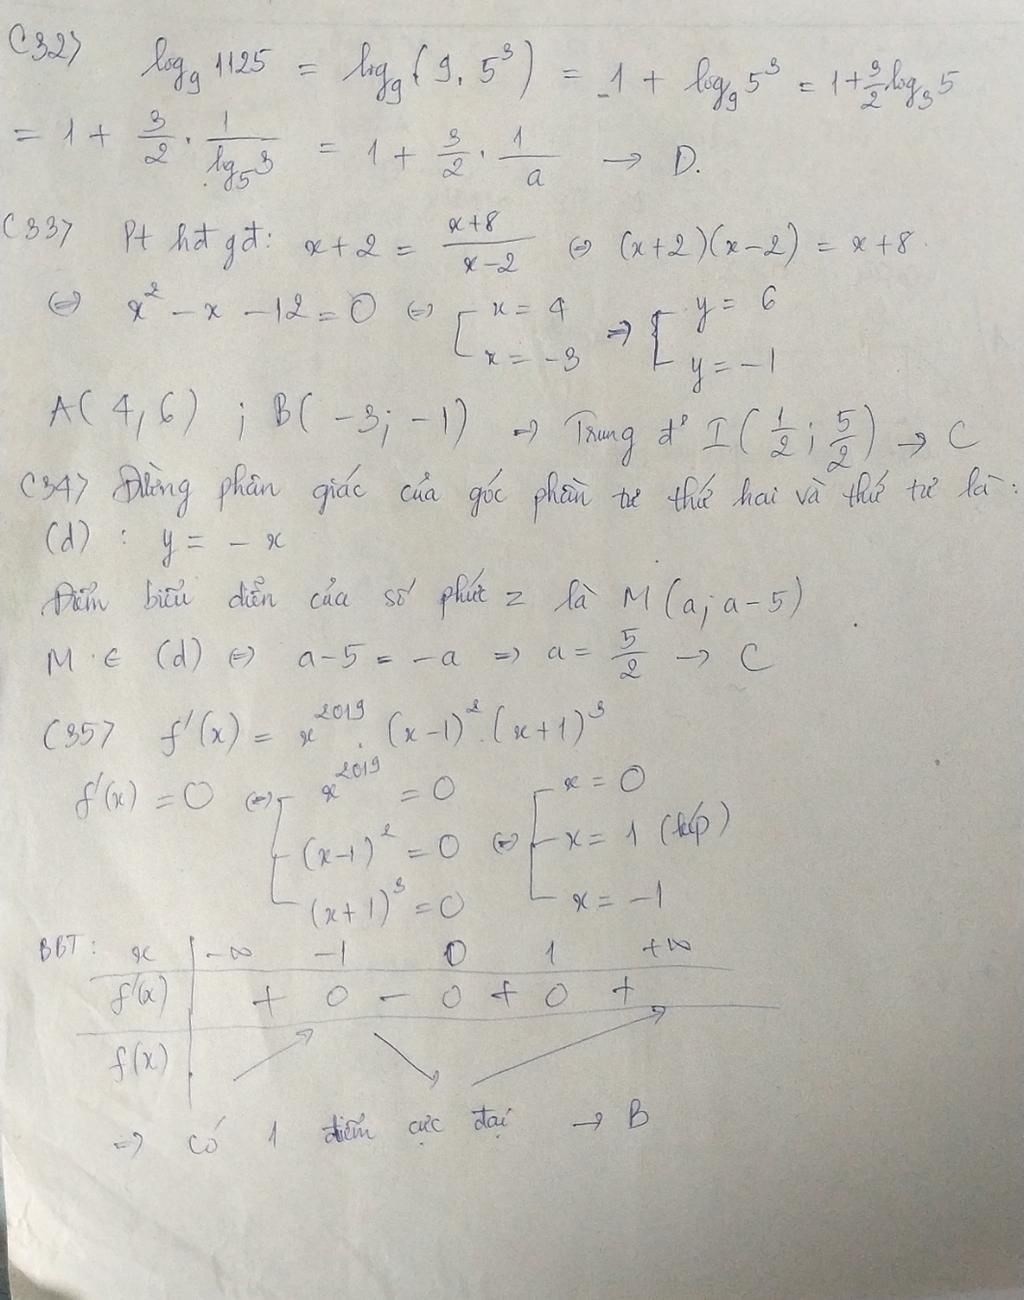 C32> log₉ 1125 = log₉ (9. 5³) = 1 + log₉ 5³ = 1 + 3/2 log₃ 5
= 1 + 3/2 . 1/log₅ 3 = 1 + 3/2 . 1/a → D.
C33> Pt hđ gđ: x + 2 = (x+8)/(x-2) ⇔ (x+2)(x-2) = x+8.
⇔ x² - x - 12 = 0 ⇔ [ x = 4 ⇒ [ y = 6
x = -3 y = -1
A(4, 6) ; B(-3; -1) ⇒ Trung đ' I(1/2; 5/2) → C
C34> Đường phân giác của góc phần tư thứ hai và thứ tư là:
(d) : y = - x
Điểm biểu diễn của số phức z là M(a; a-5)
M ∈ (d) ⇔ a-5 = -a ⇒ a = 5/2 → C
C35> f'(x) = x²⁰¹⁹. (x-1)². (x+1)³
f'(x) = 0 ⇔ [ x²⁰¹⁹ = 0 [ x = 0
(x-1)² = 0 ⇔ x = 1 (kép)
(x+1)³ = 0 x = -1
BBT: x -∞ -1 0 1 +∞
f'(x) + 0 - 0 + 0 +
f(x)
⇒ có 1 điểm cực đại → B